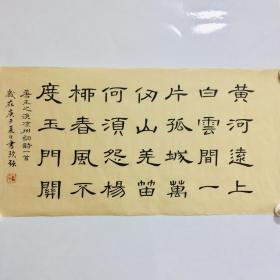 黄河遠上
白雲間一
片孤城萬
仞山羌笛
何須怨楊
柳春風不
度玉門關
唐王之渙凉州詞詩一首
歲在庚子夏日書